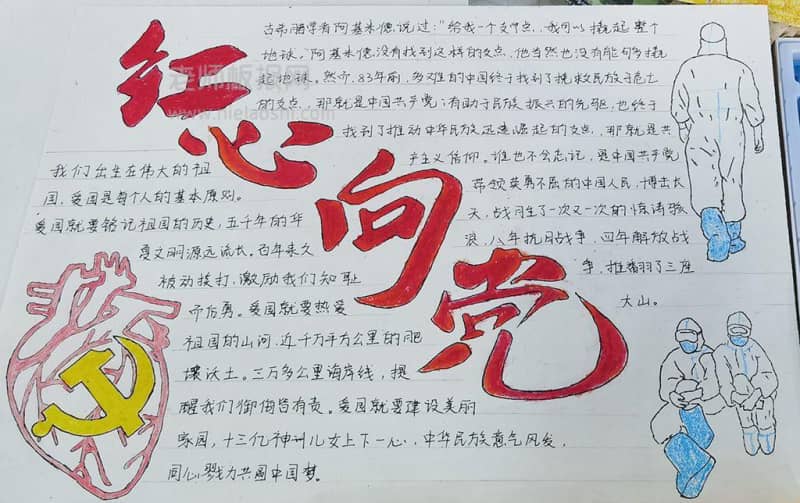 红心向党
古希腊学有阿基米德说过："给我一个支点,我可以撬起整个
地球。"阿基米德没有找到这样的支点,他当然也没有能够多撬
起地球。然而,83年前,多难的中国终于找到了挽救民族于危亡
的支点,那就是中国共产党;有助于民族振兴的先驱,也终于
找到了推动中华民族迅速崛起的支点,那就是共
产主义信仰。谁也不会忘记,是中国共产党
带领英勇不屈的中国人民,搏击长
天,战胜了一次又一次的惊涛骇
浪,八年抗日战争,四年解放战
争,推翻了三座
大山。
我们出生在伟大的祖
国,爱国是每个人的基本原则。
爱国就要铭记祖国的历史,五千年的华
夏文明源远流长。百年来久
被动挨打,激励我们知耻
而后勇。爱国就要热爱
祖国的山河,近千万平方公里的肥
壤沃土。三万多公里海岸线,提
醒我们御侮皆有责。爱国就要建设美丽
家园,十三亿神州儿女上下一心,中华民族意气风发,
同心戮力共圆中国梦。
老师板报网
www.hielaoshi.com